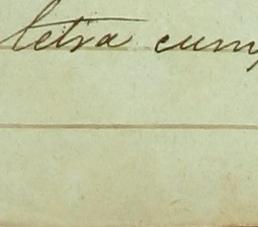 letra cump